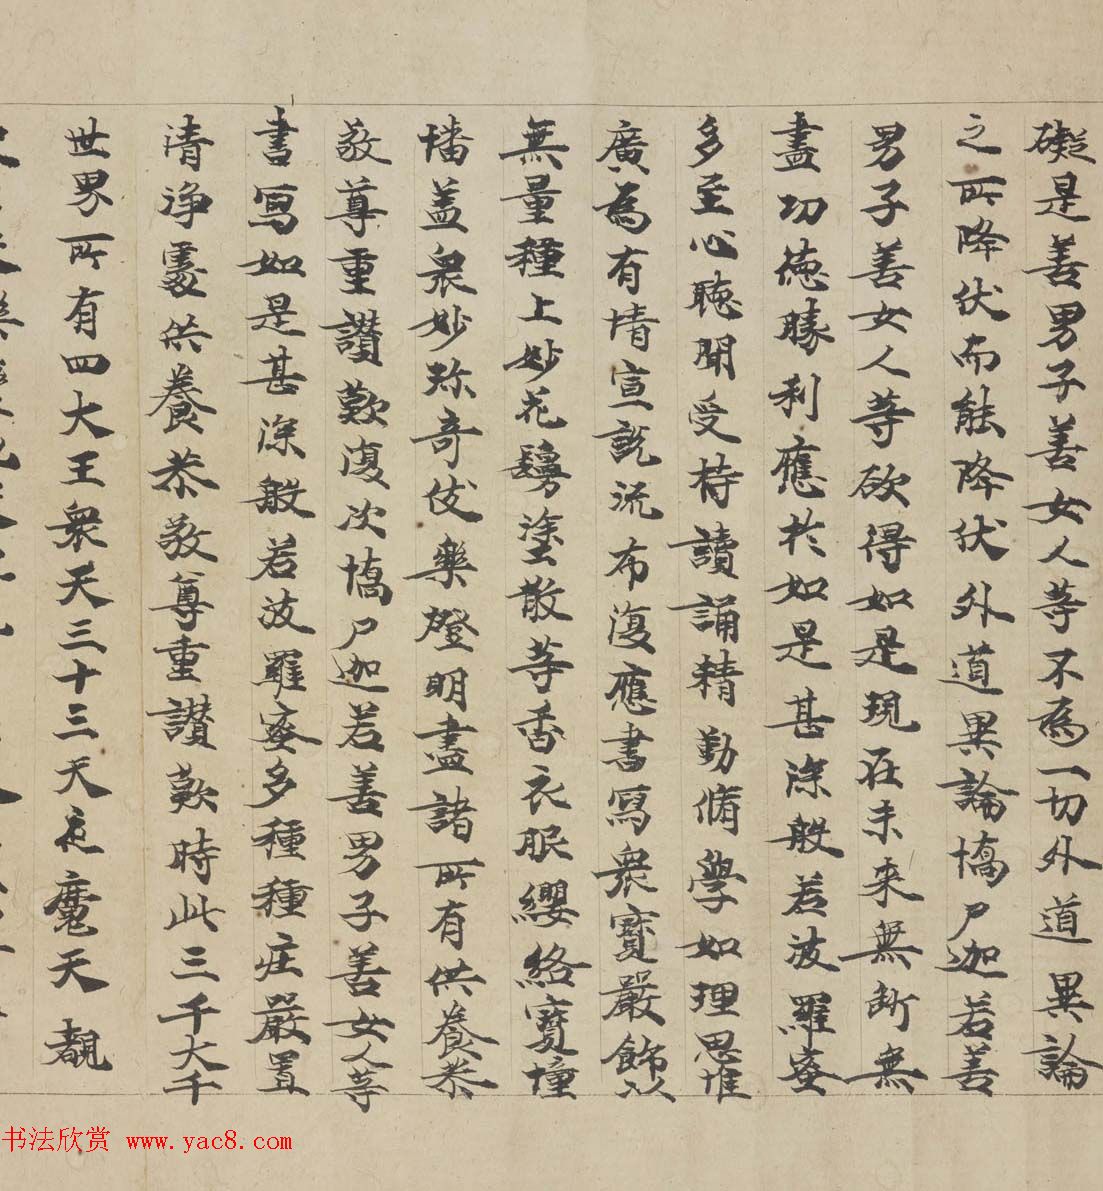 礙是善男子善女人等不為一切外道異論
之所降伏而能降伏外道異論憍尸迦若善
男子善女人等欲得如是現在未來無斷無
盡功德勝利應於如是甚深般若波羅蜜
多至心聽聞受持讀誦精勤脩學如理思惟
廣為有情宣說流布復應書寫衆寶嚴飾以
無量種上妙花鬘塗散等香衣服纓絡寶幢
幡盖衆妙珎奇伎樂燈明盡諸所有供養恭
敬尊重讚歎復次憍尸迦若善男子善女人等
書寫如是甚深般若波羅蜜多種種莊嚴置
清淨處供養恭敬尊重讚歎時此三千大千
世界所有四大王衆天三十三天夜魔天覩
书法欣赏 www.yac8.com